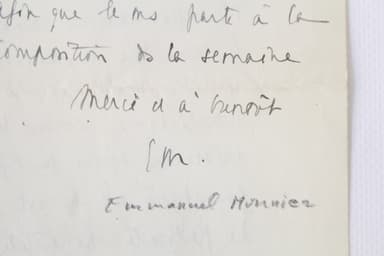 afin que le ms parte à la
composition de la semaine
Merci et à bientôt
EM.
Emmanuel Mounier